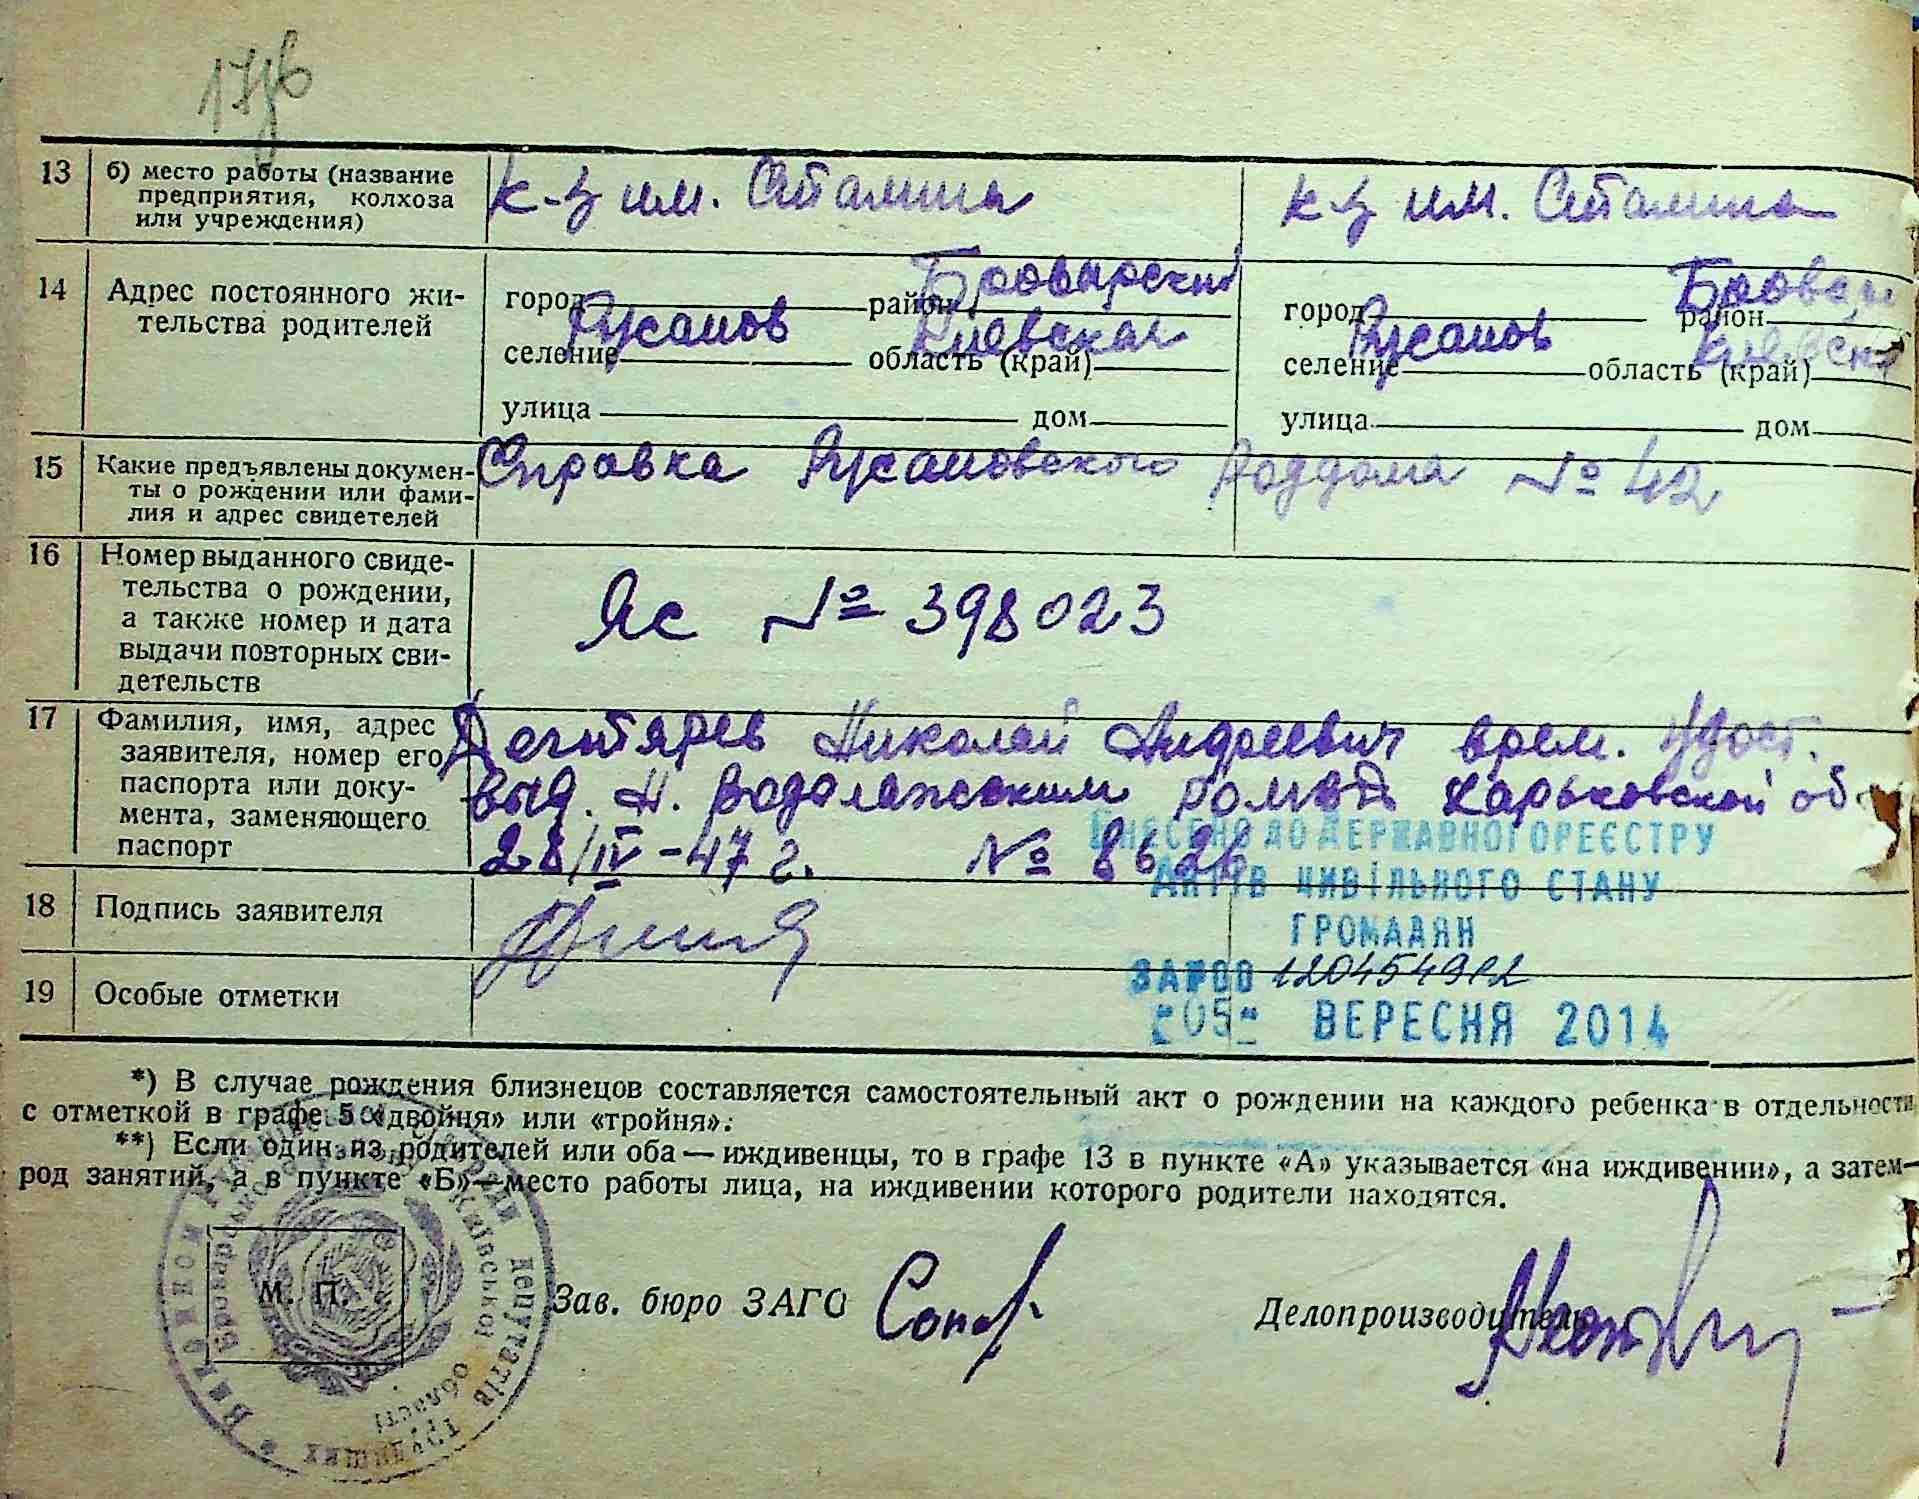 13 б) место работы (название
предприятия, колхоза
или учреждения)
к-з им. Сталина
к-з им. Сталина
14 Адрес постоянного жи-
тельства родителей
город район Броварский
селение Русанов область (край) Киевская
улица дом
город район
селение Русанов область (край)
улица дом
15 Какие предъявлены докумен-
ты о рождении или фами-
лия и адрес свидетелей
Справка Русановского Роддома № 42
16 Номер выданного свиде-
тельства о рождении,
а также номер и дата
выдачи повторных сви-
детельств
Яс № 398023
17 Фамилия, имя, адрес
заявителя, номер его
паспорта или доку-
мента, заменяющего
паспорт
Дегтярев Николай Андреевич врем. удост.
выд. Н. Водолажским Харьковской об
28/IV-47 г. №
ВНЕСЕНО ДО ДЕРЖАВНОГО РЕЄСТРУ
АКТІВ ЦИВІЛЬНОГО СТАНУ
ГРОМАДЯН
18 Подпись заявителя
19 Особые отметки
"05" ВЕРЕСНЯ 2014
*) В случае рождения близнецов составляется самостоятельный акт о рождении на каждого ребенка в отдельности
с отметкой в графе 5 «двойня» или «тройня».
**) Если один из родителей или оба — иждивенцы, то в графе 13 в пункте «А» указывается «на иждивении», а затем—
род занятий, а в пункте «Б»—место работы лица, на иждивении которого родители находятся.
М. П.
Зав. бюро ЗАГС
Делопроизводитель
депутатів трудящих
Київської області